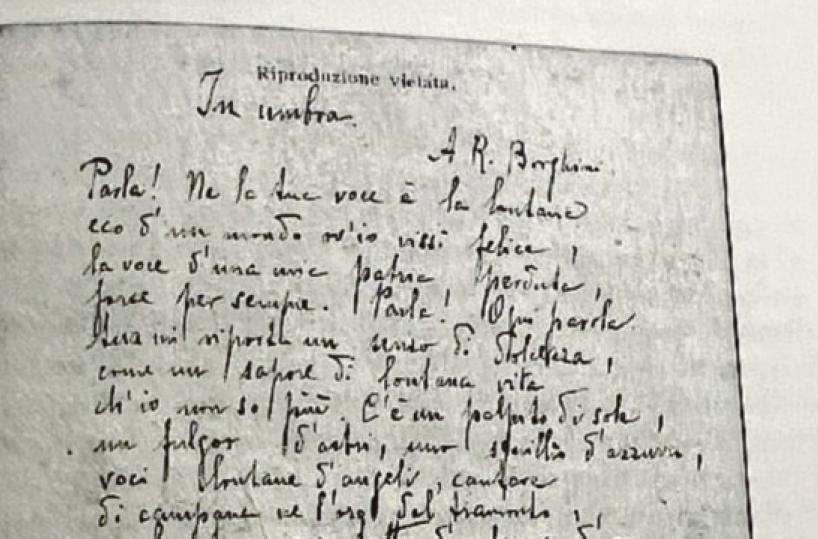 Riproduzione vietata.
In umbra.
A R. Borghini.
Parla! Ne la tua voce è la lontana
eco d'un mondo ov'io vissi felice,
la voce d'una mia patria perduta,
forse per sempre. Parla! Ogni parola
tua mi riporta un senso di dolcezza,
come un sapore di lontana vita
ch'io non so più. C'è un palpito di sole,
un fulgor d'astri, uno squillo d'azzurro,
voci lontane d'angeli, cantare
di campane ne l'ora del tramonto,